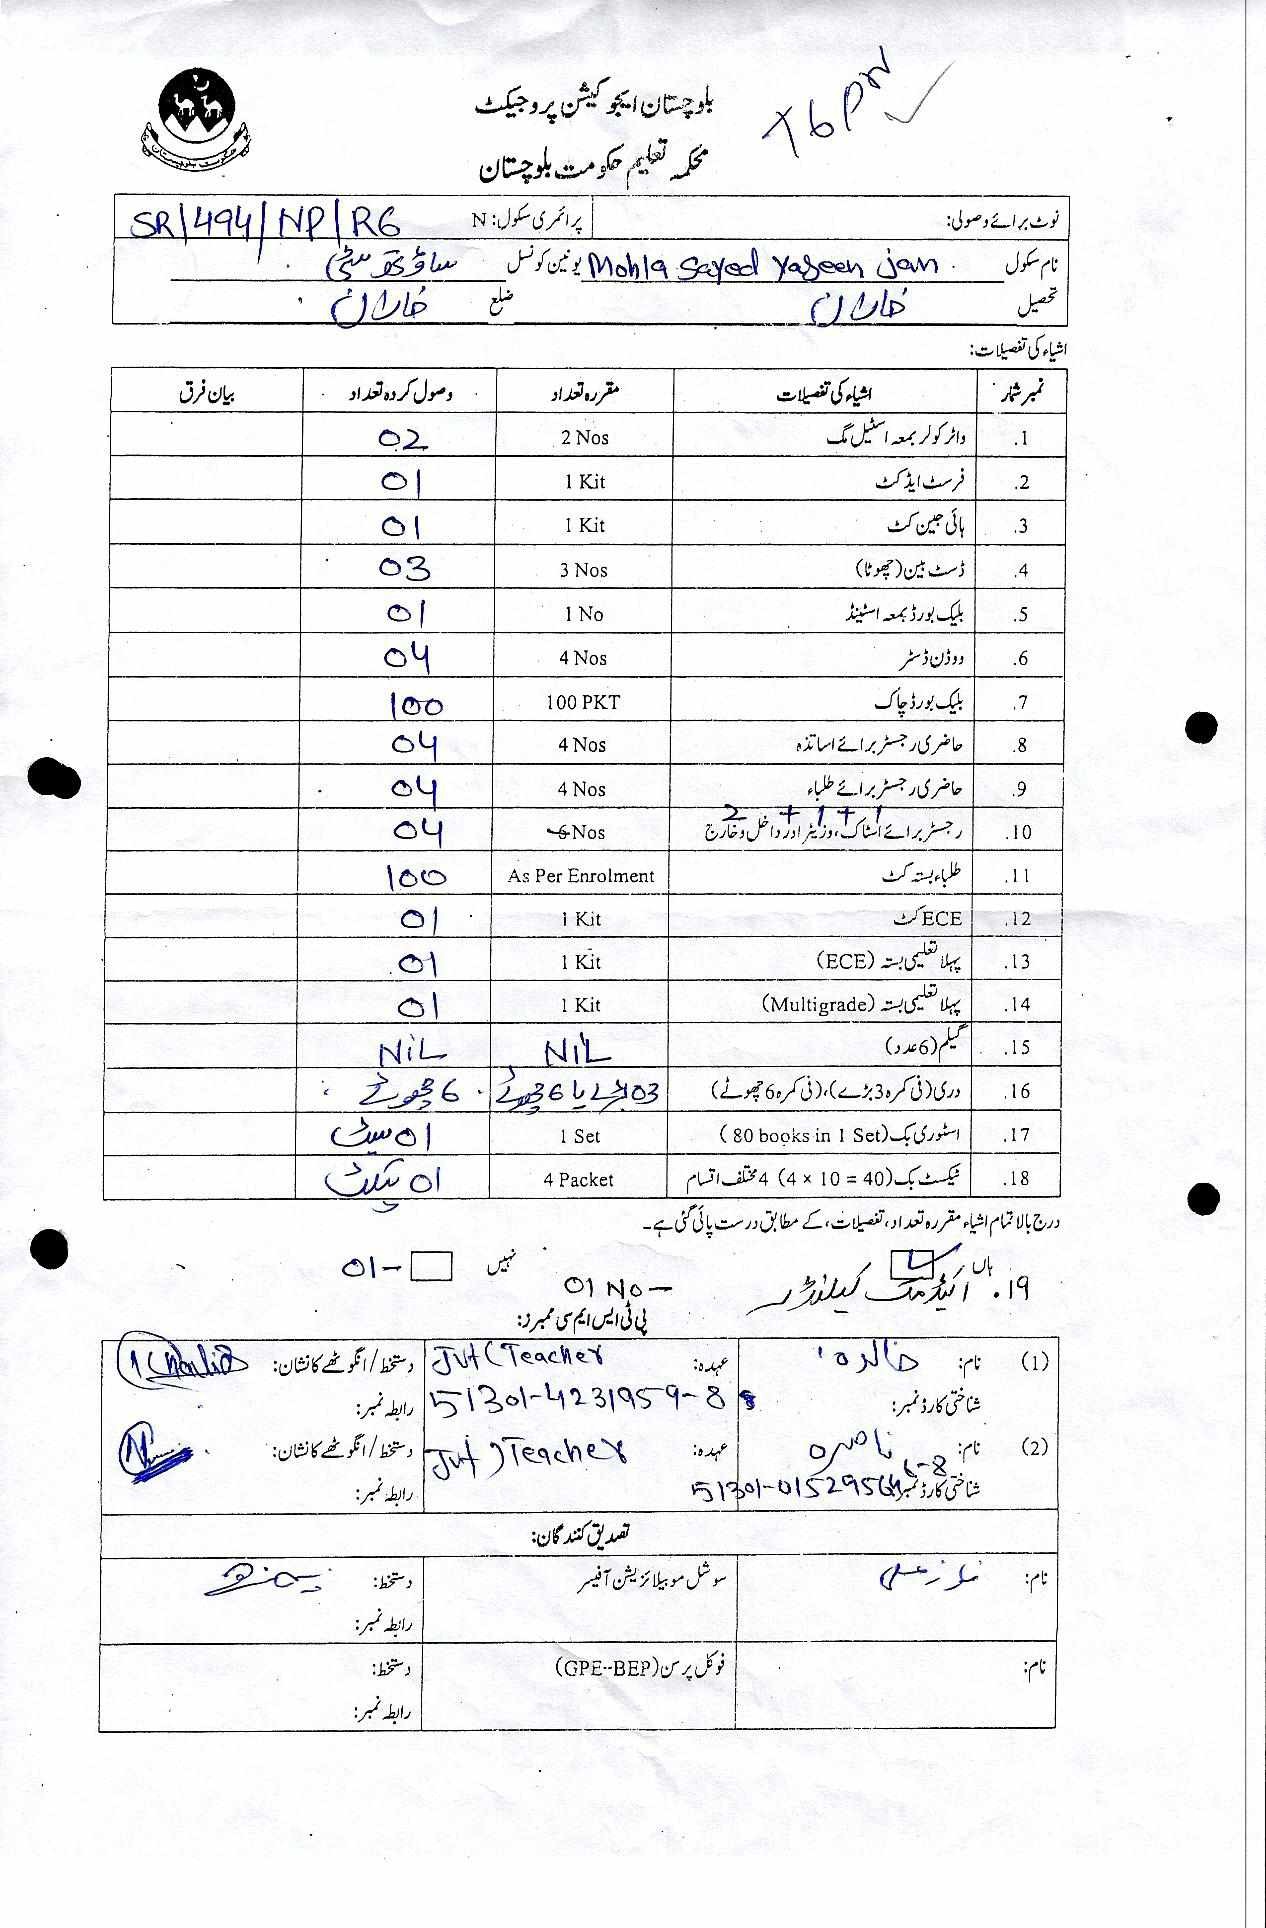 بلوچستان ایجوکیشن پروجیکٹ
محکمہ تعلیم حکومت بلوچستان
نوٹ برائے وصولی: پرائمری سکول: N SR/494/NP/R6
نام سکول Mohla Sayed Yaseen Jan یونین کونسل ساؤتھ سٹی
تحصیل خاران ضلع خاران
اشیاء کی تفصیلات:
نمبر شمار اشیاء کی تفصیلات مقررہ تعداد وصول کردہ تعداد بیان فرق
1. واٹر کولر بمعہ اسٹیل مگ 2 Nos 02
2. فرسٹ ایڈ کٹ 1 Kit 01
3. ہائی جین کٹ 1 Kit 01
4. ڈسٹ بین (چھوٹا) 3 Nos 03
5. بلیک بورڈ بمعہ اسٹینڈ 1 No 01
6. ووڈن ڈسٹر 4 Nos 04
7. بلیک بورڈ چاک 100 PKT 100
8. حاضری رجسٹر برائے اساتذہ 4 Nos 04
9. حاضری رجسٹر برائے طلباء 4 Nos 04
2 + 1 + 1
10. رجسٹر برائے اسٹاک، وزیٹر اور داخل و خارج 6 Nos 04
11. طلباء بستہ کٹ As Per Enrolment 100
12. ECE کٹ 1 Kit 01
13. پہلا تعلیمی بستہ (ECE) 1 Kit 01
14. پہلا تعلیمی بستہ (Multigrade) 1 Kit 01
15. گیلم (6 عدد) NIL NIL
16. دری (فی کمرہ 3 بڑے)، (فی کمرہ 6 چھوٹے) 03 بڑے یا 6 چھوٹے 6 چھوٹے
17. اسٹوری بک (80 books in 1 Set) 1 Set 01 سیٹ
18. ٹیکسٹ بک (4 × 10 = 40) 4 مختلف اقسام 4 Packet 01 پیکٹ
درج بالا تمام اشیاء مقررہ تعداد، تفصیلات، کے مطابق درست پائی گئی ہے۔
ہاں نہیں 01-
19. اکیڈمک کیلنڈر 01 No-
پی ٹی ایس ایم سی ممبرز:
(1) نام: خالدہ عہدہ: JVT (Teacher دستخط/انگوٹھے کا نشان:
شناختی کارڈ نمبر: 51301-4231959-8 رابطہ نمبر:
(2) نام: ناصرہ عہدہ: JVT) Teacher دستخط/انگوٹھے کا نشان:
شناختی کارڈ نمبر رابطہ نمبر:
تصدیق کنندگان:
نام: سوشل موبیلائزیشن آفیسر دستخط:
رابطہ نمبر:
نام: فوکل پرسن (GPE--BEP) دستخط:
رابطہ نمبر: